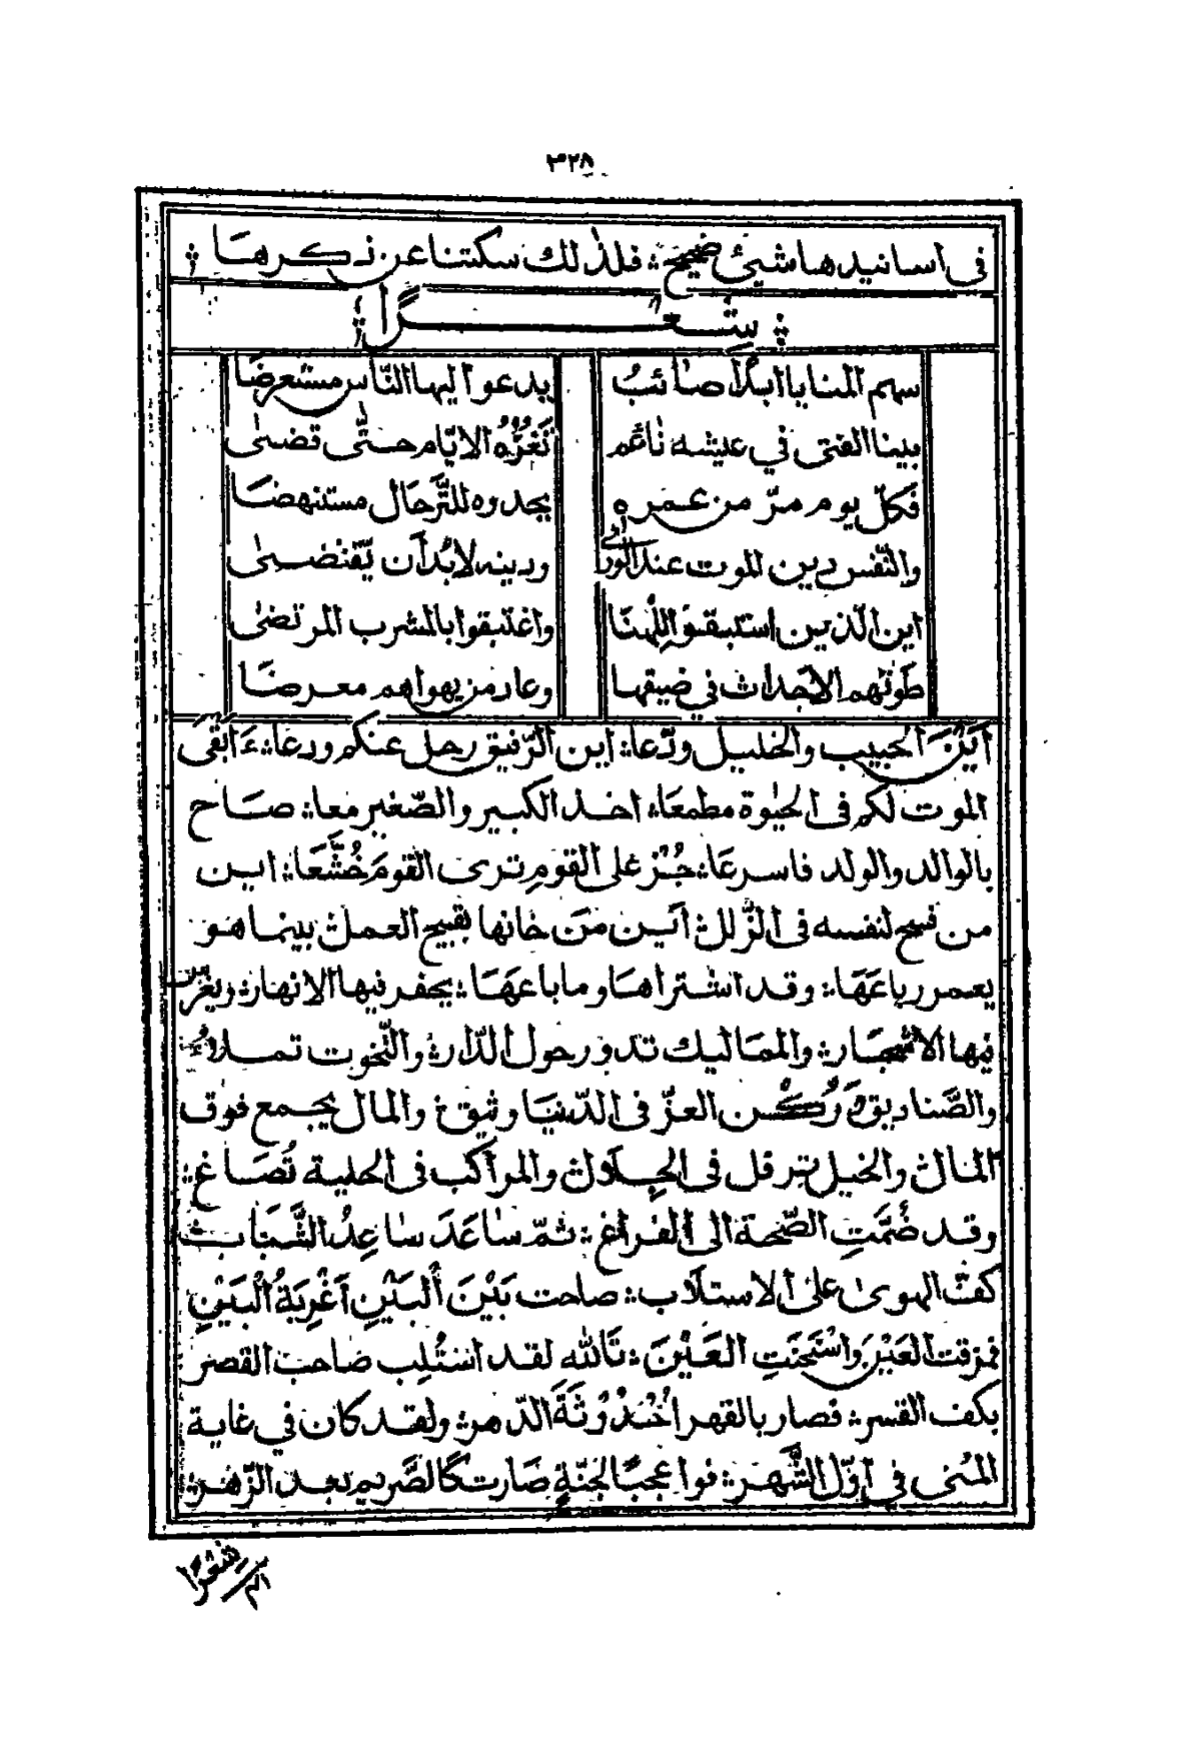 ٣٢٨
فى اسانيدها شيئ صحيح ؛ فلذلك سكتنا عن ذكرها ؛
؛ شعرًا ؛
سهم المنايا ابدًا صائبُ يدعوا اليها النّاس مستعرضا
بينا الفتى في عيشه ناعم تغرّه الايّام حتّى قضىٰ
فكلّ يوم مرّ من عمره يحدوه للتَّرحال مستنهضا
والنّفس دين للموت عند الورىٰ ودينه لابُدَّ ان يّقتضىٰ
اين الّذين استبقوا للهنَا واغتبقوا بالمشرب المرتضىٰ
طَوَتْهم الاَجداث في ضيقها وعاد من يهواهم معرضَا
اَيْنَ الحبيب والخليل ودّعا؛ اين الرّفيق رحل عنكم ودعا؛ ءَابقى
الموت لكم فى الحيٰوة مطمعَا؛ اخذ الكبير والصّغير معا؛ صَاح
بالوالد والولد فاسرعَا؛ جُزْ على القومِ ترى القومَ خُشَّعَا؛ اين
من فسح لنفسه فى الزّلل؛ اَين مَن خانها بقبيح العمل؛ بينما هو
يعمر رباعَهَا؛ وقد اشتراهَا وما باعهَا؛ يحفر فيها الانهار؛ ويغرس
فيها الاشجَار؛ والممَاليك تدور حول الدّار؛ والتّخوت تملاءُ؛
والصَّناديق؛ وَرُكْن العزّ فى الدّنيَا وثيق؛ والمال يجمع فوق
المال؛ والخيل ترفل فى الجِلال؛ والمراكب فى الحلية تُصَاغ؛
وقد ضُمَّتِ الصّحة الى الفراغ؛ ثمّ سَاعَدَ ساعِدُ الشَّبَاب؛
كفّ الهوىٰ على الاستلاب؛ صاحت بَيْنَ اُلبَيْنِ اَغْرِبَةُ الْبَيْنِ
فمزقت العَيْنَ وَاسْخَنَتِ العَيْنَ؛ تَالله لقد استُلِب صَاحب القصر
بكف القسر؛ فصار بالقهر اُحْدُوْثَةَ الدّهر؛ ولقد كان في غاية
المُنى في اوّل الشَّهر؛ فوا عجبًا لجنّةٍ صَارت كَالصَّريم بعد الزّهر؛
شعرًا